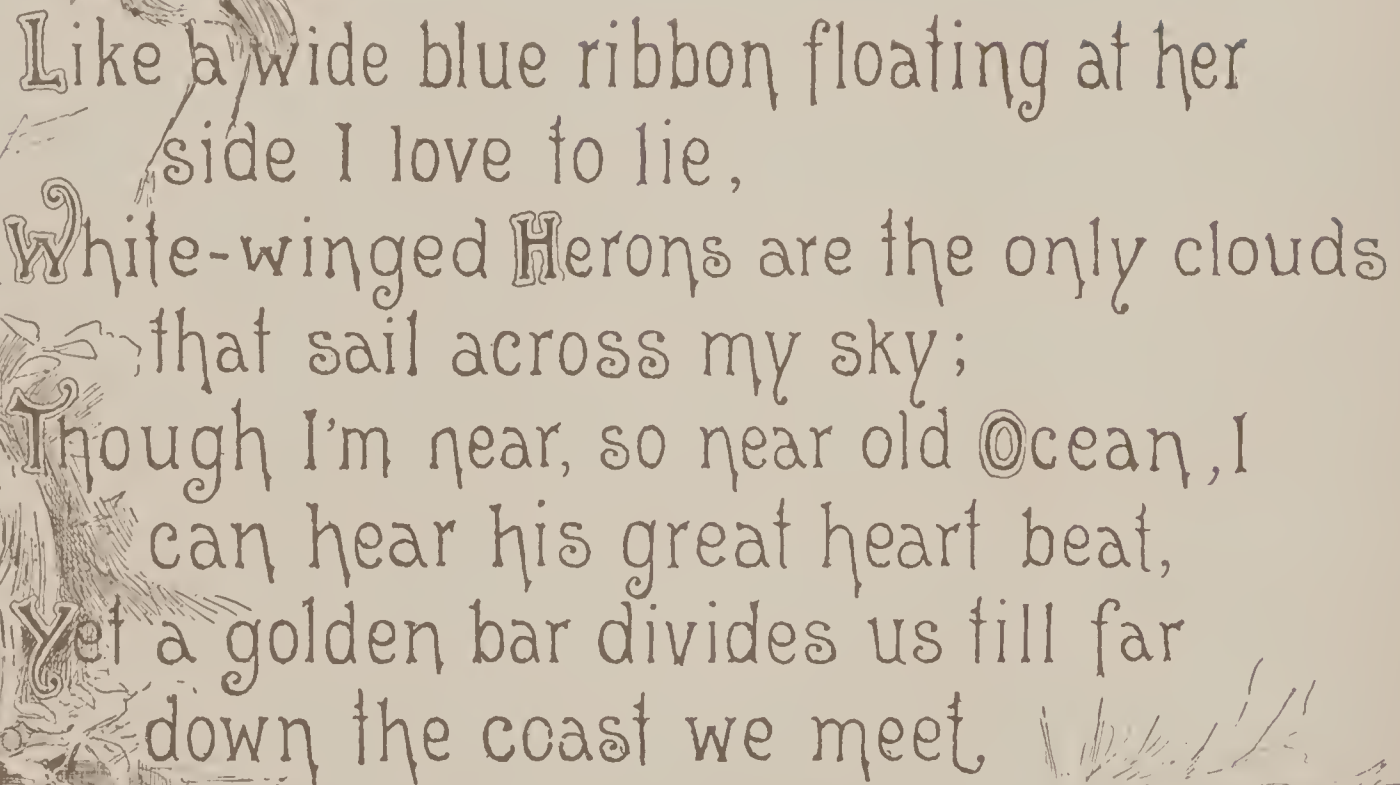 Like a wide blue ribbon floating at her
side I love to lie,
White-winged Herons are the only clouds
that sail across my sky;
Though I'm near, so near old Ocean, I
can hear his great heart beat,
Yet a golden bar divides us till far
down the coast we meet,